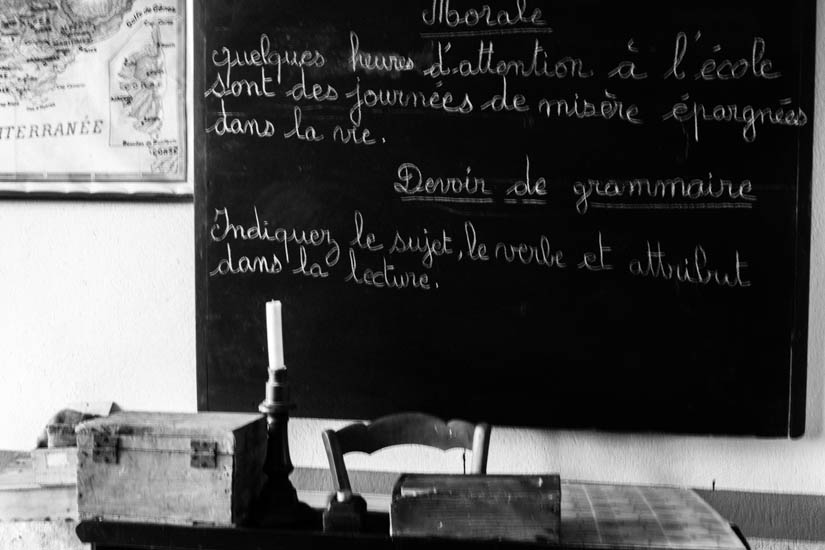 Morale
quelques heures d'attention à l'école
sont des journées de misère épargnées
dans la vie.
Devoir de grammaire
Indiquez le sujet, le verbe et attribut
dans la lecture.
TERRANÉE